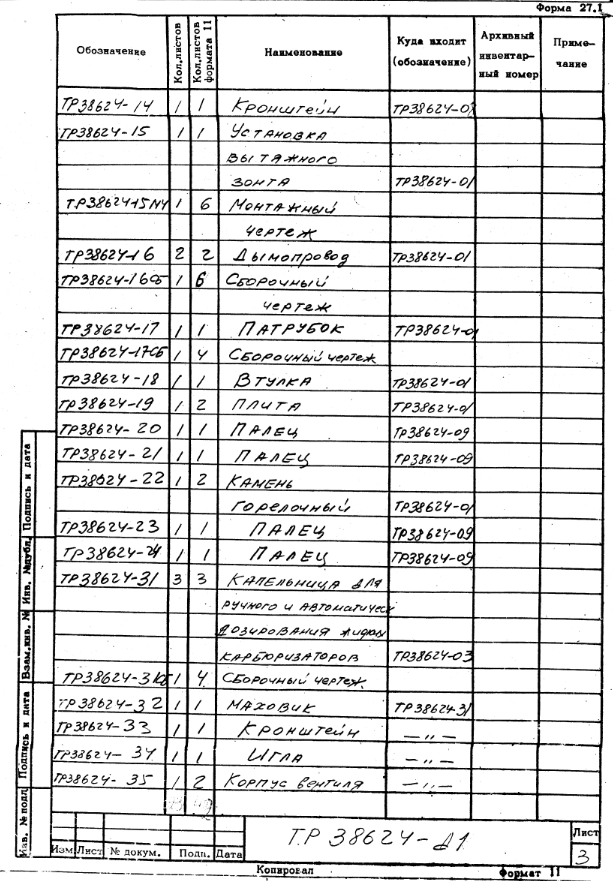 Форма 27.1
Обозначение Кол.листов Кол.листов формата 11 Наименование Куда входит (обозначение) Архивный инвентарный номер Примечание
ТР38624-14 1 1 Кронштейн ТР38624-01
ТР38624-15 1 1 Установка
вытяжного
зонта ТР38624-01
ТР38624-15МЧ 1 6 Монтажный
чертеж
ТР38624-16 2 2 Дымопровод ТР38624-01
ТР38624-16СБ 1 6 Сборочный
чертеж
ТР38624-17 1 1 Патрубок ТР38624-01
ТР38624-17СБ 1 4 Сборочный чертеж
ТР38624-18 1 1 Втулка ТР38624-01
ТР38624-19 1 2 Плита ТР38624-01
ТР38624-20 1 1 Палец ТР38624-09
ТР38624-21 1 1 Палец ТР38624-09
ТР38624-22 1 2 Камень
горелочный ТР38624-01
ТР38624-23 1 1 Палец ТР38624-09
ТР38624-24 1 1 Палец ТР38624-09
ТР38624-31 3 3 Капельница для
ручного и автоматическ
дозирования жидких
карбюризаторов ТР38624-03
ТР38624-31СБ 1 4 Сборочный чертеж
ТР38624-32 1 1 Маховик ТР38624-31
ТР38624-33 1 1 Кронштейн —〃—
ТР38624-34 1 1 Игла —〃—
ТР38624-35 1 2 Корпус вентиля —〃—
Инв. № подл. Подпись и дата Взам.инв. № Инв. №дубл. Подпись и дата
ТР 38624-Д1
Лист
3
Изм Лист № докум. Подп. Дата
Копировал Формат 11